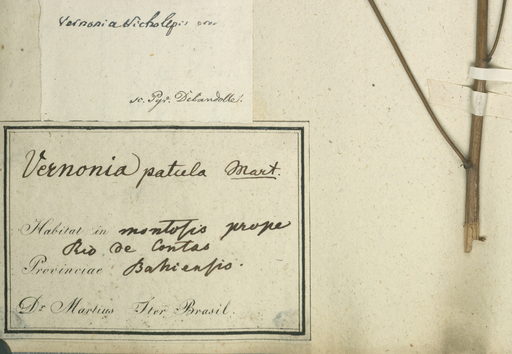 Vernonia tricholepis
sc. Pyr. Decandolle!
Vernonia patula Mart.
Habitat in montosis prope
Rio de Contas
Provinciae Bahiensis.
Dr. Martius Iter Brasil.